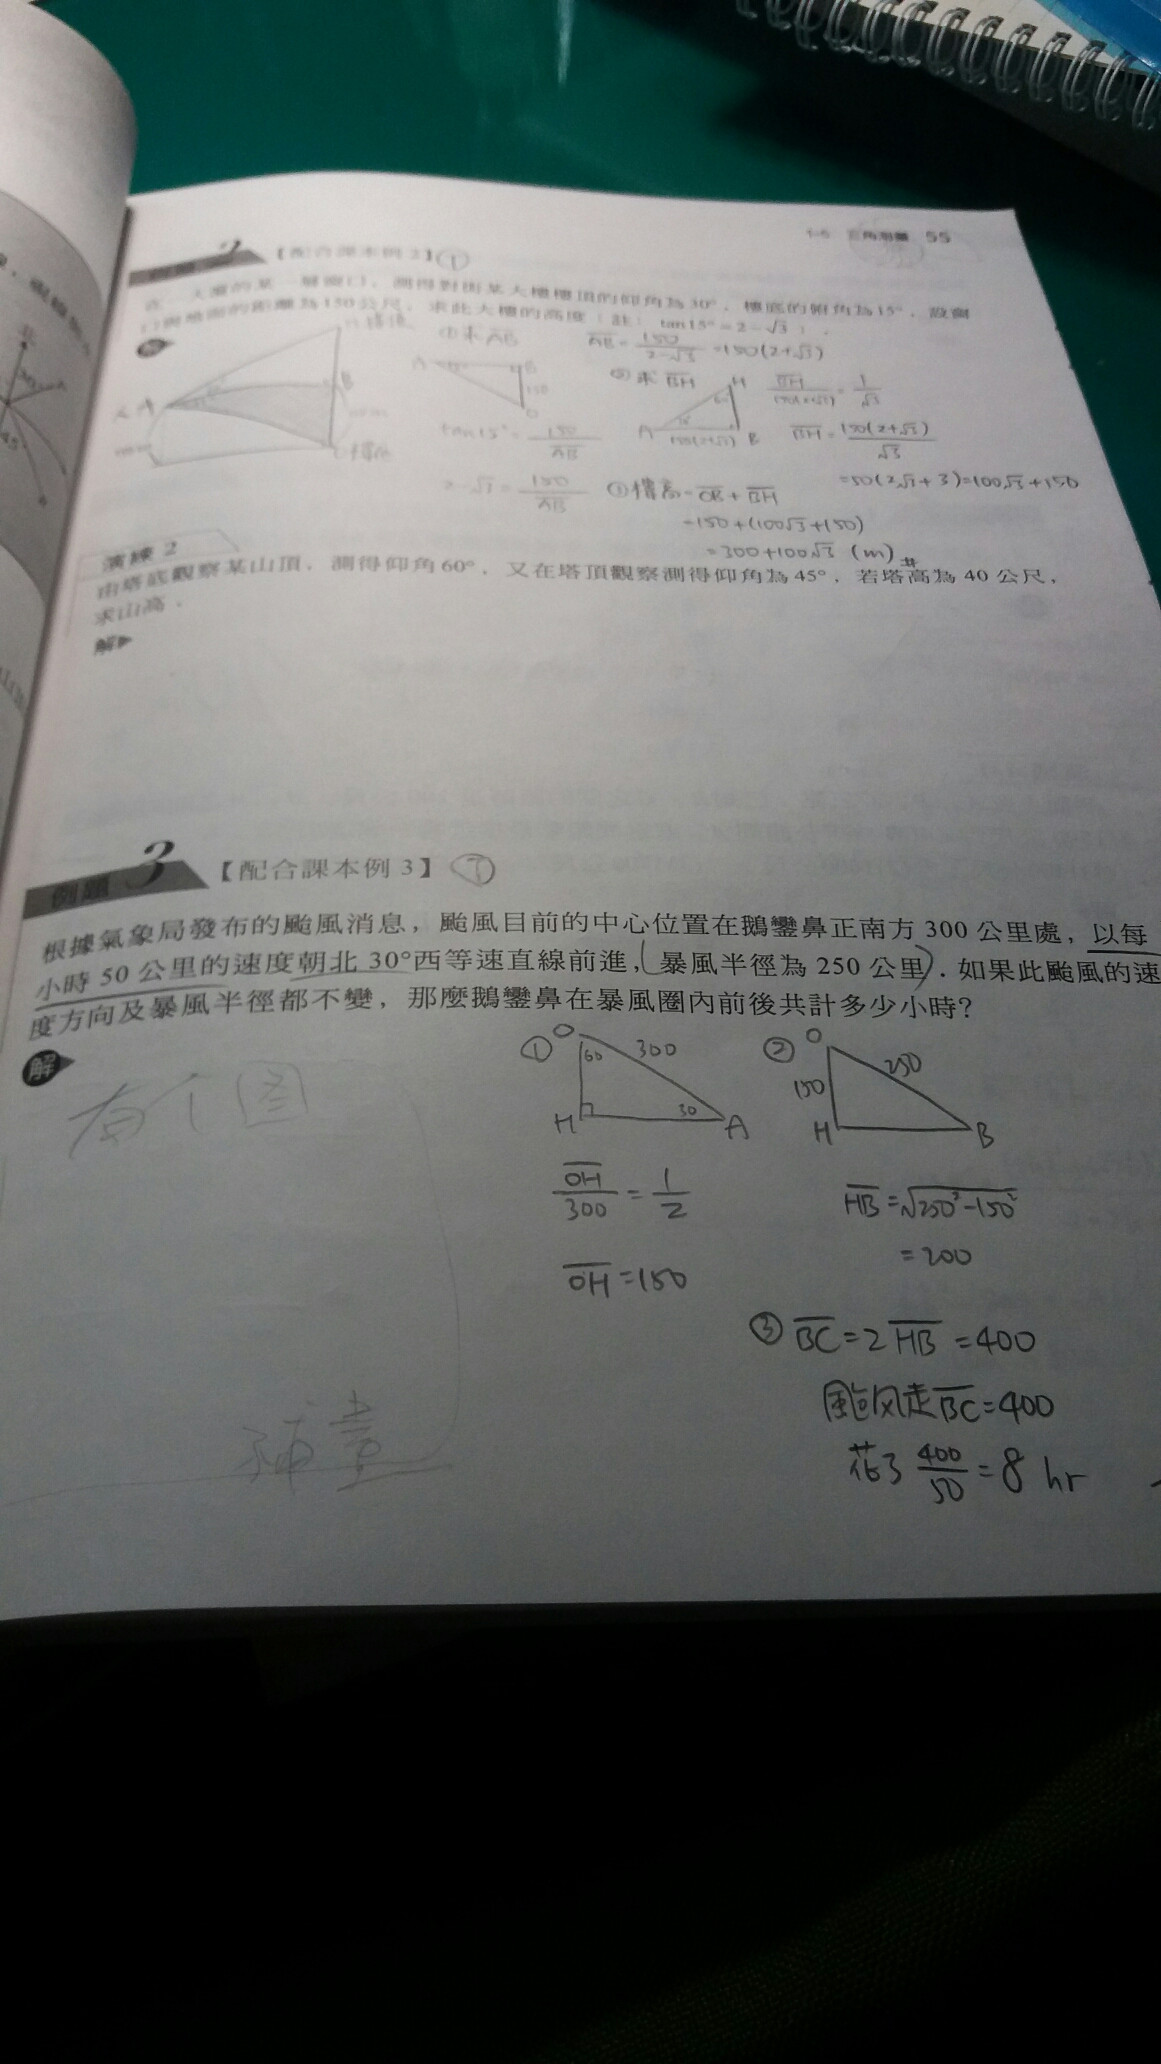 1-6 三角測量 55
例題 2 【配合課本例 2】①
在一大廈的某一層窗口,測得對街某大樓樓頂的仰角為 30°,樓底的俯角為 15°,設窗
口與地面的距離為 150 公尺,求此大樓的高度(註:tan15°=2-√3).
解
①求AB
AB=150/(2-√3)=150(2+√3)
A B 150 O
tan15°=150/AB
2-√3=150/AB
②求BH
A H B 150(2+√3)
BH/150(2+√3)=1/√3
BH=150(2+√3)/√3
=50(2√3+3)=100√3+150
③樓高=OB+BH
=150+(100√3+150)
=300+100√3 (m)#
演練 2
由塔底觀察某山頂,測得仰角 60°,又在塔頂觀察測得仰角為 45°,若塔高為 40 公尺,
求山高.
解
例題 3 【配合課本例 3】⑦
根據氣象局發布的颱風消息,颱風目前的中心位置在鵝鑾鼻正南方 300 公里處,以每
小時 50 公里的速度朝北 30°西等速直線前進,(暴風半徑為 250 公里).如果此颱風的速
度方向及暴風半徑都不變,那麼鵝鑾鼻在暴風圈內前後共計多少小時?
解
有个图
补意
① O 60 300 H 30 A
OH/300=1/2
OH=150
② O 150 250 H B
HB=√250²-150²
=200
③ BC=2HB=400
颱风走BC=400
花了 400/50=8 hr